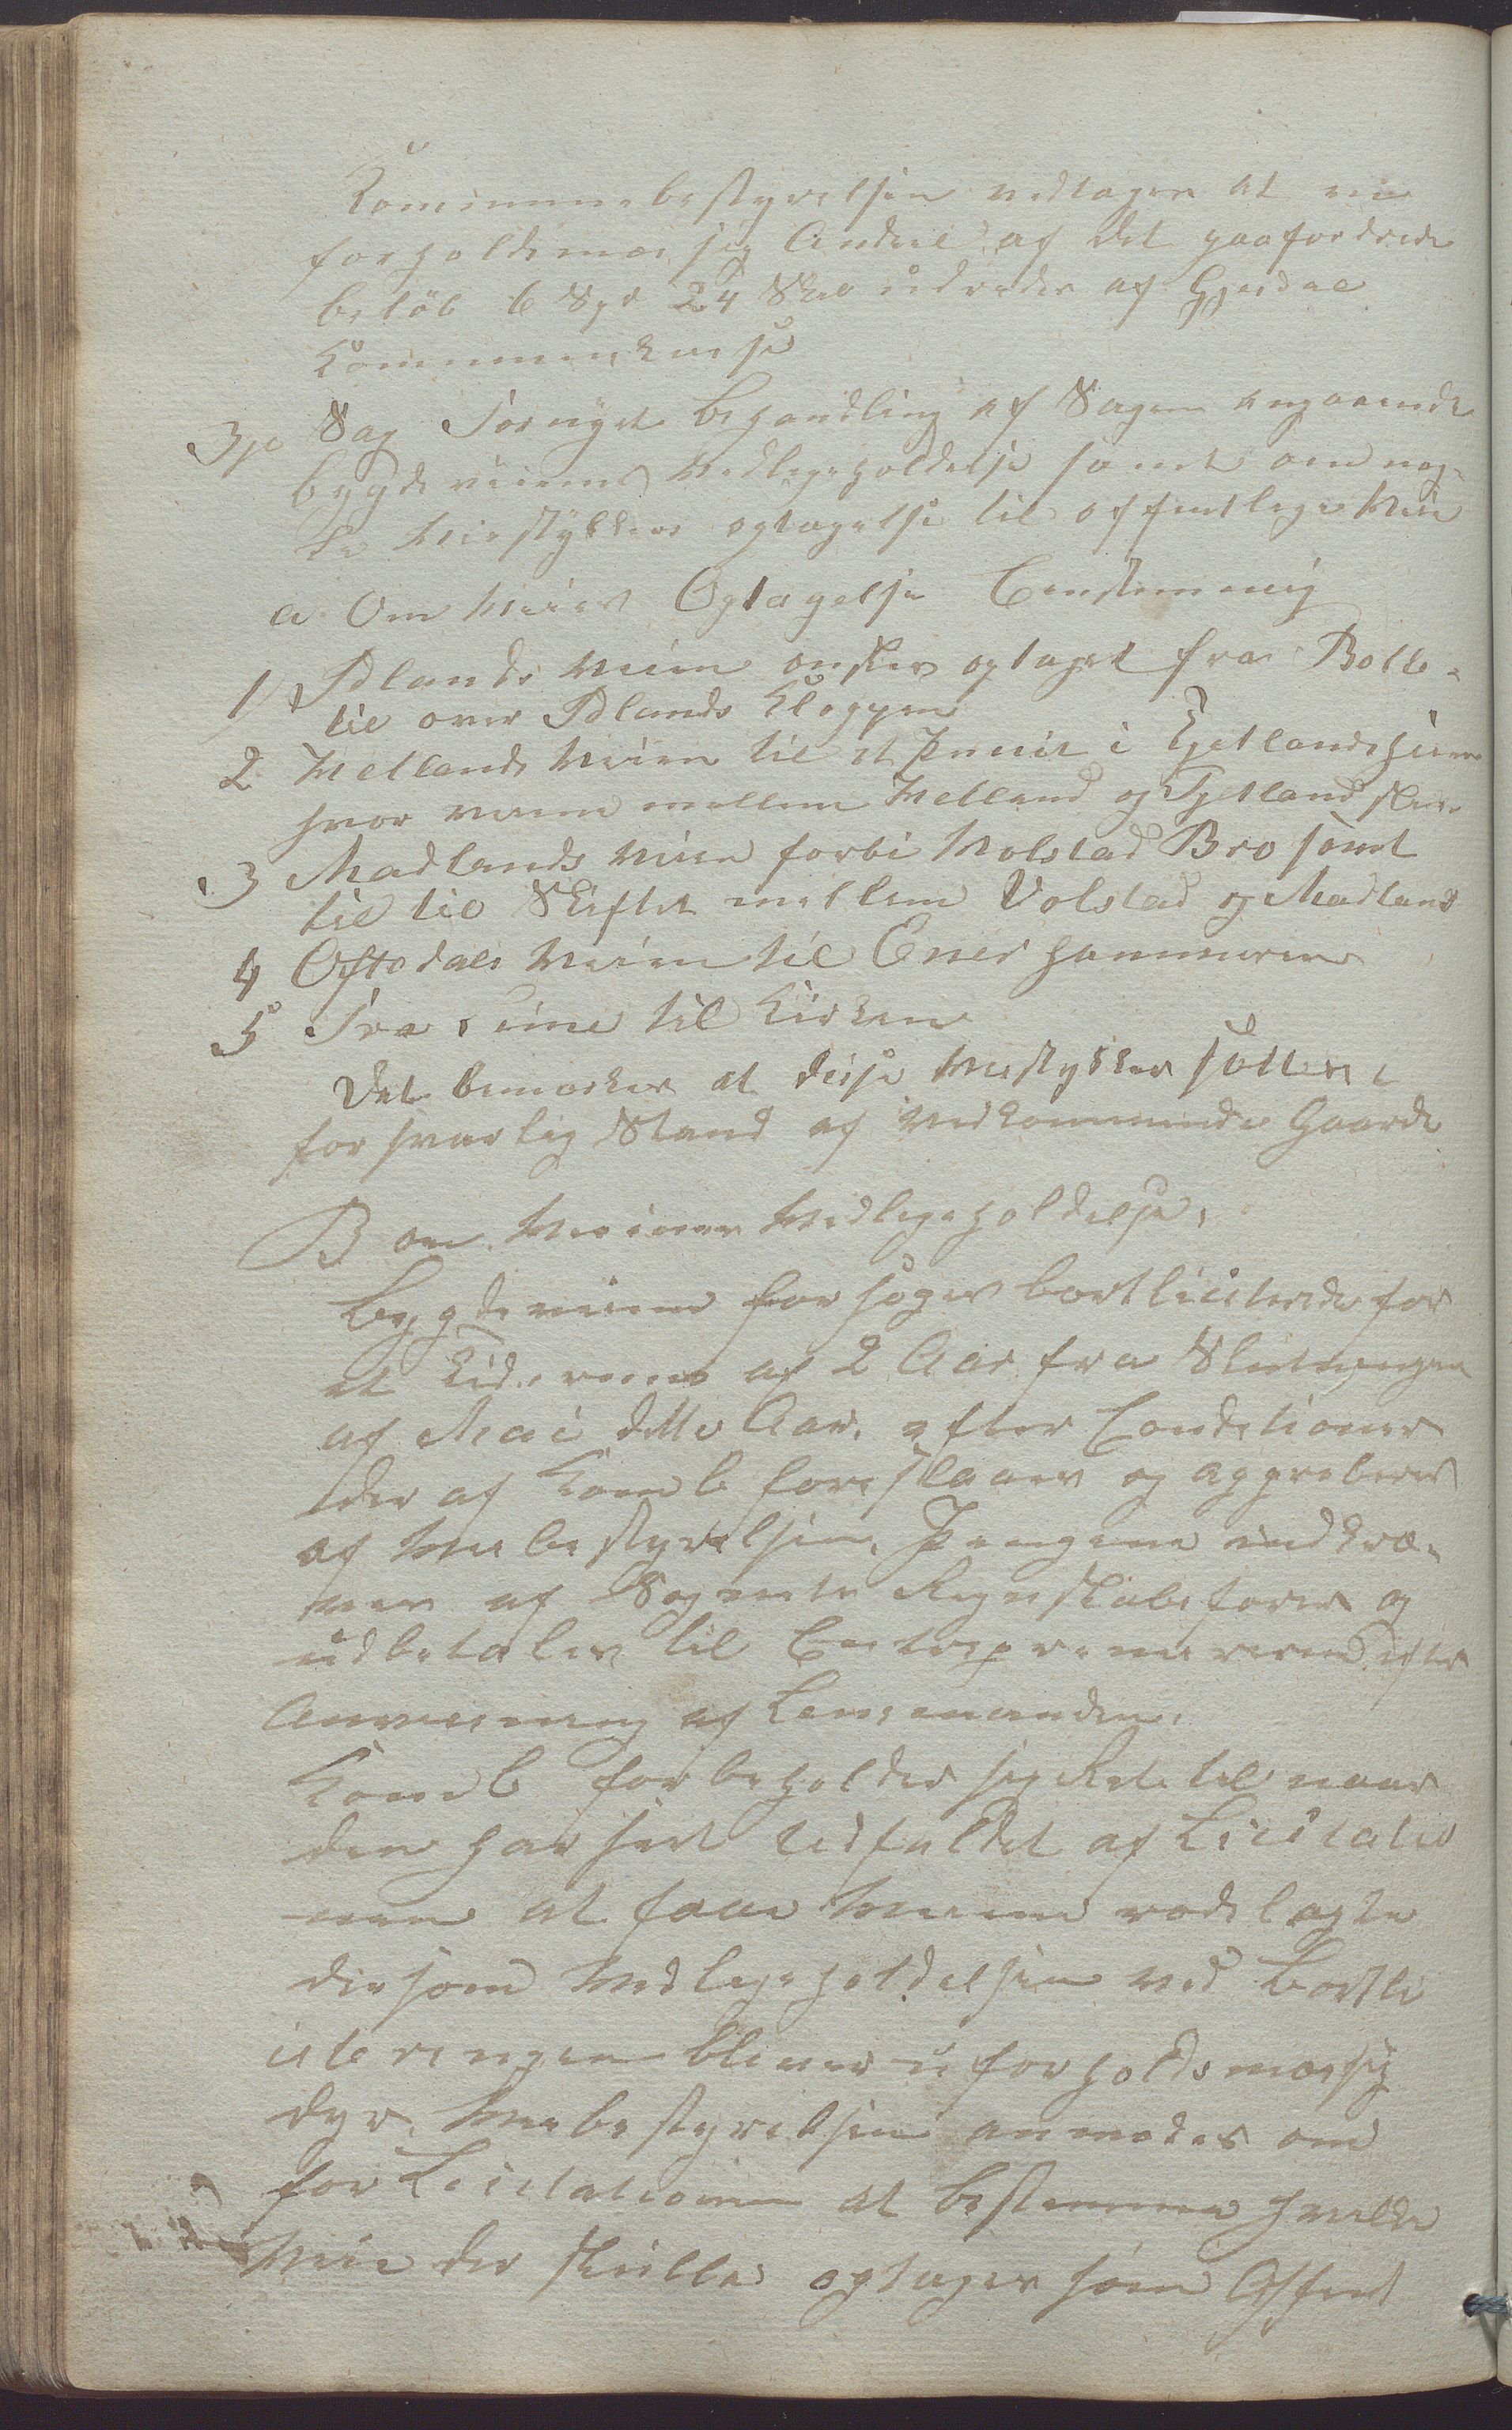 Kommunebestyrelsen vedtager at en
forholdsmæssig Andeel af det paafordrede
beløb 6 Spd 24 Skil udredes af Gjesdal
Kommunekasse
3je Sag Fornyet behandling af Sagen angaaende
bygdeveienes Vedligeholdelse samt om nog-
le Veistykkers optagelse til offentlige Veie
a Om Veies Optagelse Eenstemmig
1) Ødlands Veien ønskes optaget fra Bolle-
til over Ødlands Kloppen
2 Vetlands Veien til et Punct i Tjetlandsheien
hvor veiene mellem Vetland og Tjetland
3 Madlands Veien forbi Volstad Bro samt
til til Skiftet mellem Volstad og Madland
4 Oftedals Veien til Eneshammeren
5 Fra Lime til Kirken
Det bemærkes at disse Veistykker sættes i
forsvarlig Stand af vedkommende Gaarde
B om Veienes Vedligeholdelse.
bygdeveiene forsøges bortliciterede for
et Tidsrum af 2 Aar fra Slutningen
af Mai dette Aar, efter Conditioner
der af Komb foreslaaes og approberes
af Veibestyrelsen, Pengene indkræ-
ves af Sognets Regnskabsfører og
udbetales til Entreprenørerne efter
Anviisning af Lensmanden.
Komb forbeholder sig Ret til naar
den har seet Udfaldet af Licitatio
nen at faae Veiene rodelagte
dersom Vedligeholdelsen ved Bortli
citeringen bliver uforholdsmæssig
dyr, Veibestyrelsen anmodes om
før Licitationen at bestemme hvilke
Veie der skulle optages som Offent